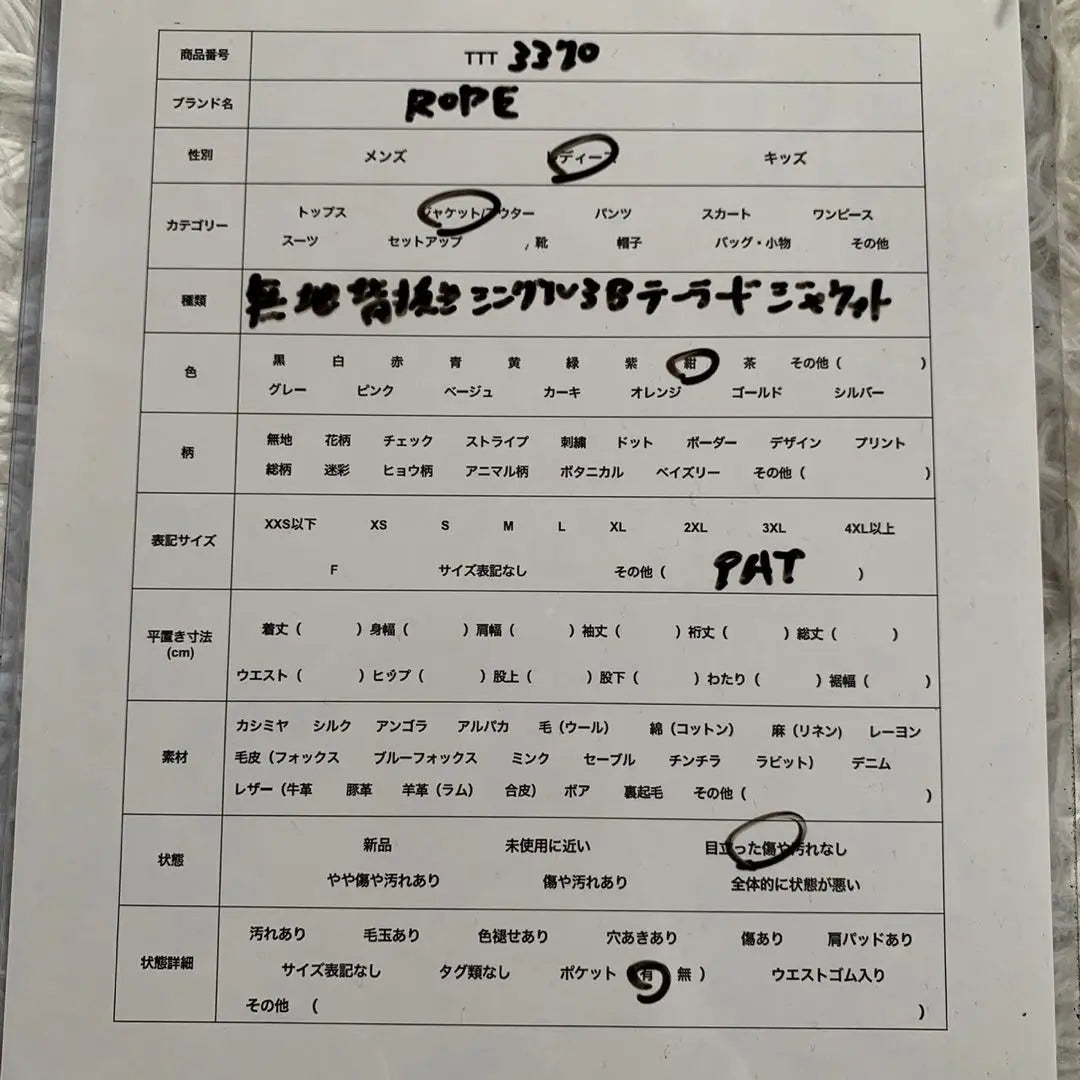 商品番号 TTT 3370
ブランド名 ROPE
性別 メンズ レディース キッズ
カテゴリー
トップス ジャケット/アウター パンツ スカート ワンピース
スーツ セットアップ 靴 帽子 バッグ・小物 その他
種類 無地 背抜き シングル3Bテーラードジャケット
色
黒 白 赤 青 黄 緑 紫 紺 茶 その他( )
グレー ピンク ベージュ カーキ オレンジ ゴールド シルバー
柄
無地 花柄 チェック ストライプ 刺繍 ドット ボーダー デザイン プリント
総柄 迷彩 ヒョウ柄 アニマル柄 ボタニカル ペイズリー その他( )
表記サイズ
XXS以下 XS S M L XL 2XL 3XL 4XL以上
F サイズ表記なし その他( )
平置き寸法
(cm)
着丈( )身幅( )肩幅( )袖丈( )裄丈( )総丈( )
ウエスト( )ヒップ( )股上( )股下( )わたり( )裾幅( )
素材
カシミヤ シルク アンゴラ アルパカ 毛(ウール) 綿(コットン) 麻(リネン) レーヨン
毛皮(フォックス ブルーフォックス ミンク セーブル チンチラ ラビット) デニム
レザー(牛革 豚革 羊革(ラム) 合皮) ボア 裏起毛 その他( )
状態
新品 未使用に近い 目立った傷や汚れなし
やや傷や汚れあり 傷や汚れあり 全体的に状態が悪い
状態詳細
汚れあり 毛玉あり 色褪せあり 穴あきあり 傷あり 肩パッドあり
サイズ表記なし タグ類なし ポケット 有 無 ) ウエストゴム入り
その他 ( )